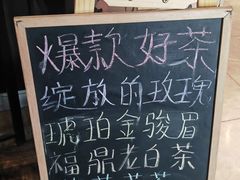 爆款好茶
绽放的玫瑰
琥珀金骏眉
福鼎老白茶